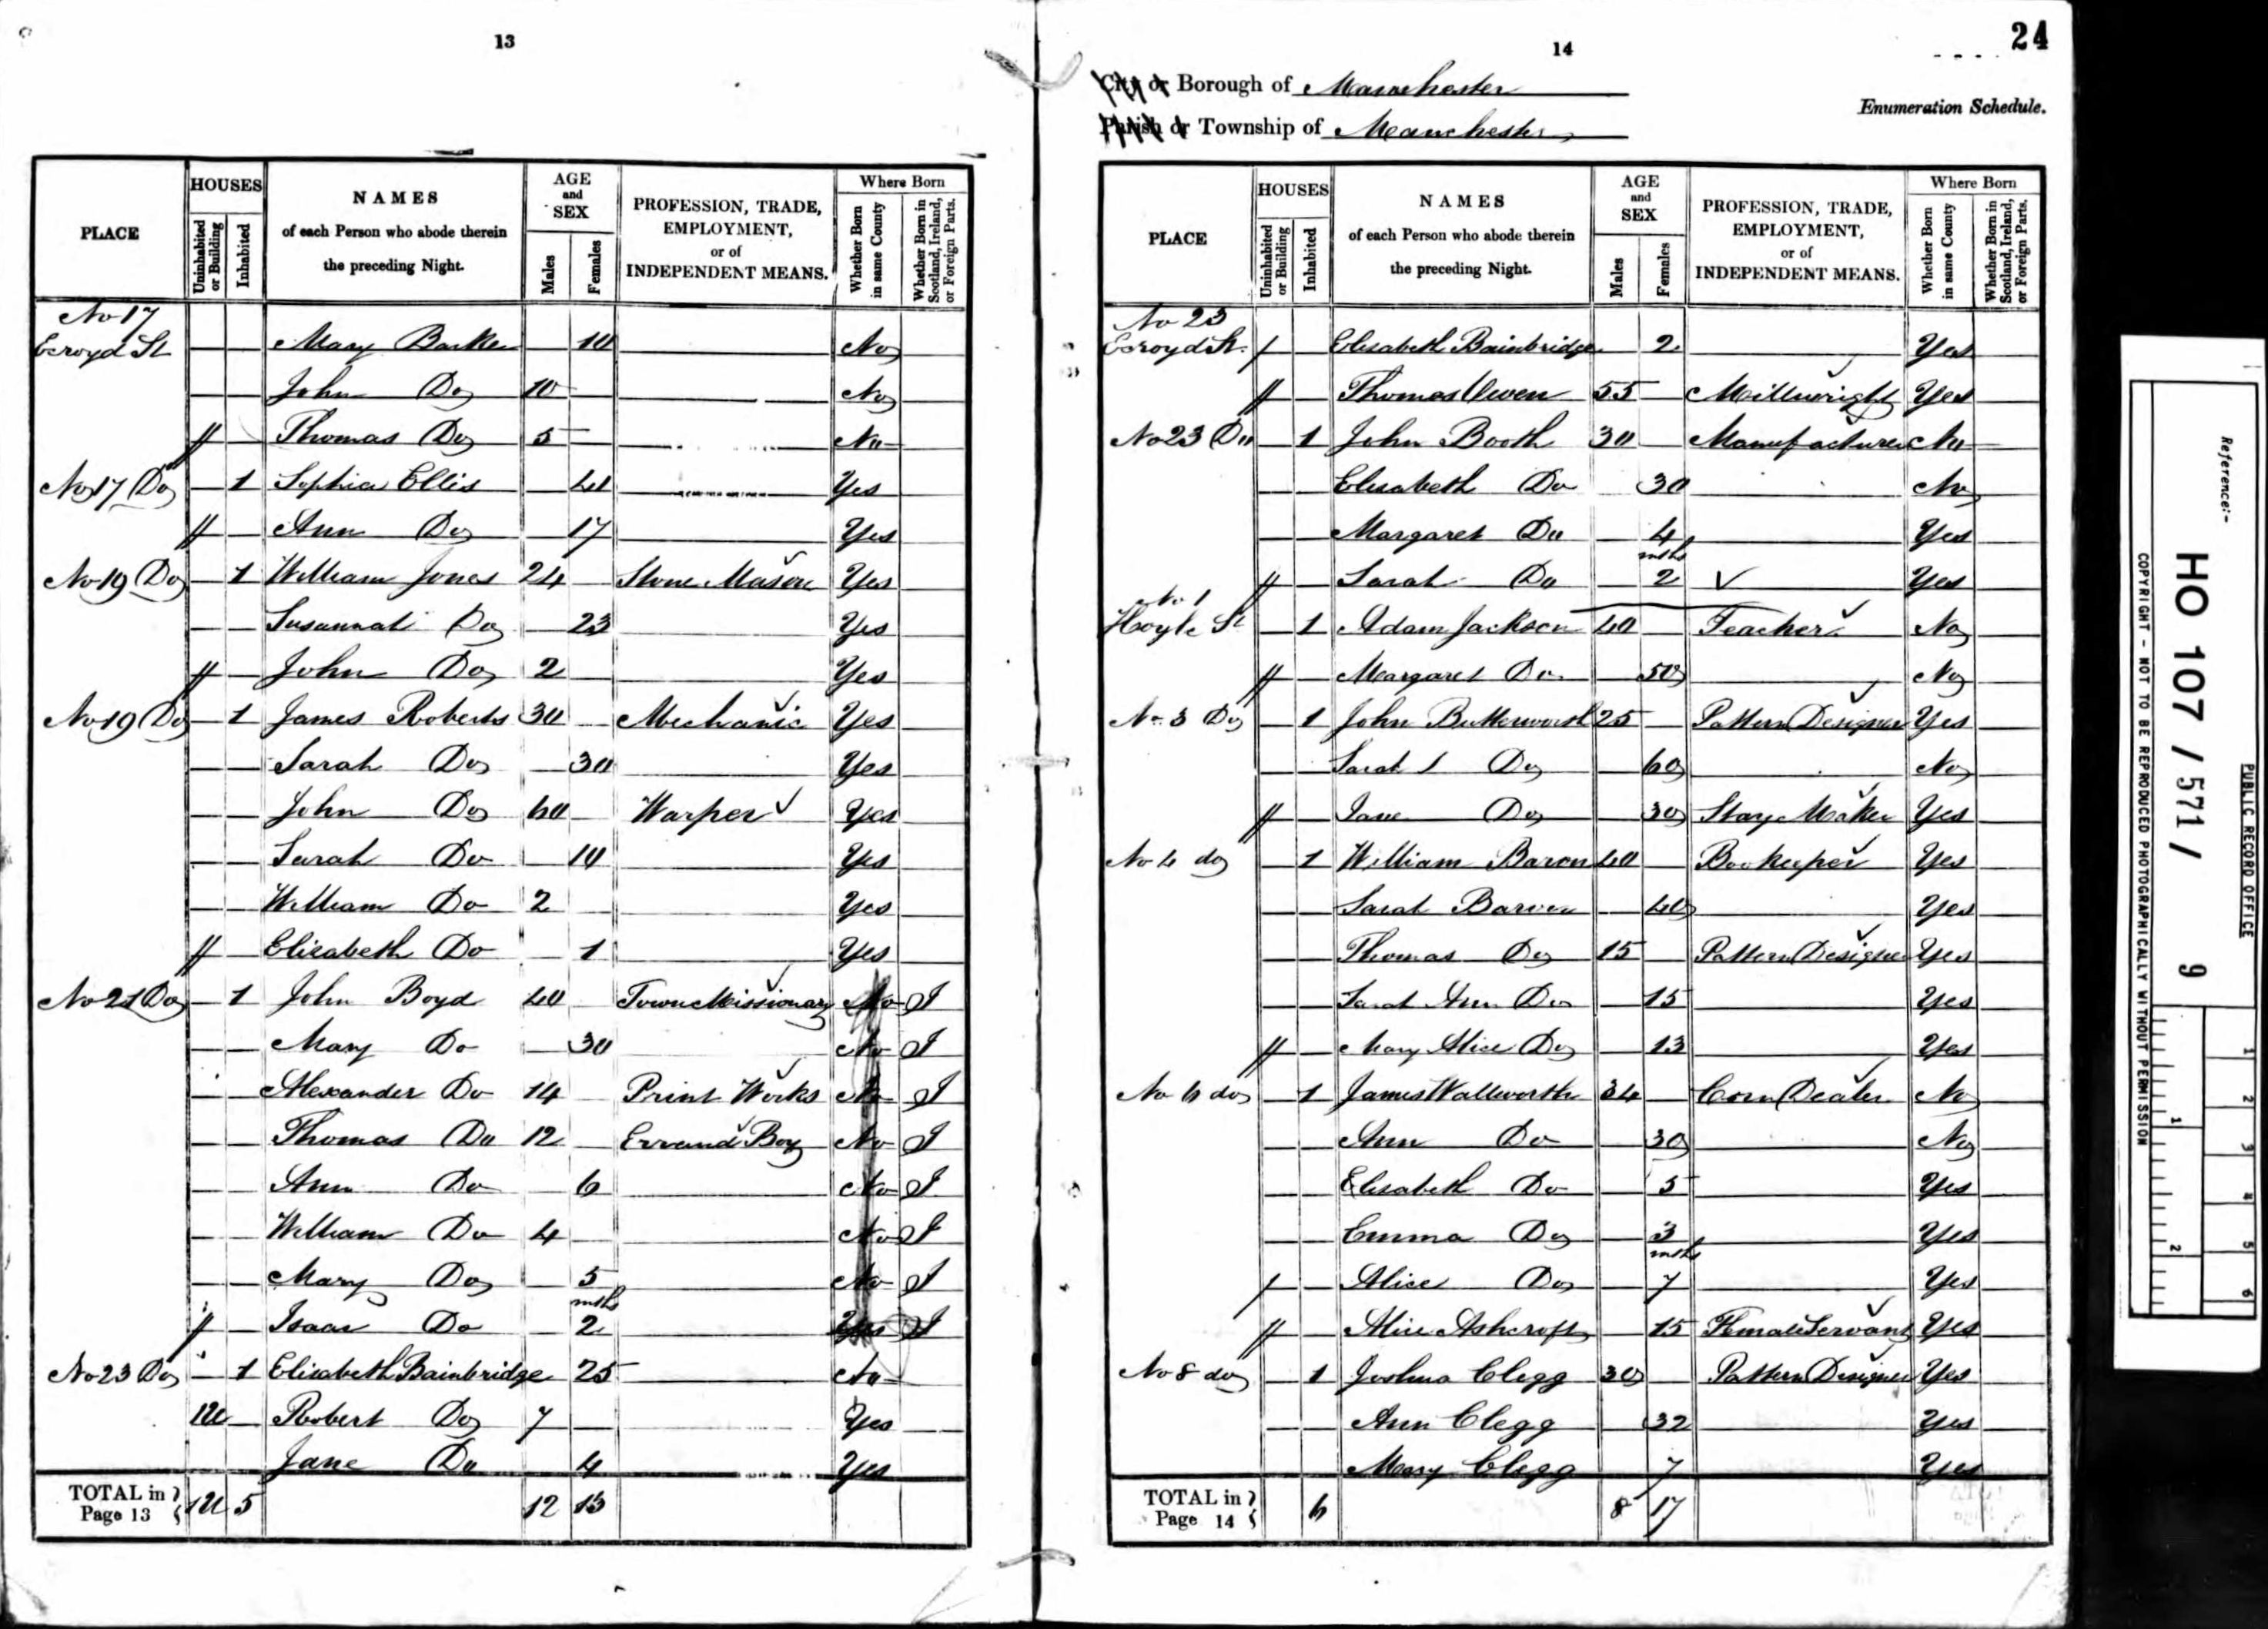 13
HOUSES
AGE
and
SEX
Where Born
PLACE
Uninhabited or Building
Inhabited
NAMES
of each Person who abode therein
the preceding Night.
Males
Females
PROFESSION, TRADE,
EMPLOYMENT,
or of
INDEPENDENT MEANS.
Whether Born in same County
Whether Born in Scotland, Ireland, or Foreign Parts.
No 17
Ecroyd St Mary Barker 10 No
John Do 10 No
Thomas Do 5 No
No 17 Do 1 Sophia Ellis 40 Yes
Ann Do 17 Yes
No 19 Do 1 William Jones 24 Stone Mason Yes
Susannah Do 23 Yes
John Do 2 Yes
No 19 Do 1 James Roberts 30 Mechanic Yes
Sarah Do 30 Yes
John Do 60 Warper Yes
Sarah Do 10 Yes
William Do 2 Yes
Elizabeth Do 1 Yes
No 21 Do 1 John Boyd 40 Town Missionary No I
Mary Do 30 No I
Alexander Do 14 Print Works No I
Thomas Do 12 Errand Boy No I
Ann Do 6 No I
William Do 4 No I
Mary Do 5 No I
mths
Isaac Do 2 Yes I
No 23 Do 1 Elizabeth Bainbridge 25 No
1U Robert Do 7 Yes
Jane Do 4 Yes
TOTAL in Page 13 1U 5 12 13
14
24
City or Borough of Manchester
Enumeration Schedule.
Parish or Township of Manchester
HOUSES
AGE
and
SEX
Where Born
PLACE
Uninhabited or Building
Inhabited
NAMES
of each Person who abode therein
the preceding Night.
Males
Females
PROFESSION, TRADE,
EMPLOYMENT,
or of
INDEPENDENT MEANS.
Whether Born in same County
Whether Born in Scotland, Ireland, or Foreign Parts.
No 23
Ecroyd St. Elisabeth Bainbridge 2 Yes
Thomas Owen 55 Millwright Yes
No 23 Do 1 John Booth 30 Manufacturer No
Elisabeth Do 30 No
Margaret Do 4 Yes
mths
Sarah Do 2 Yes
No 1
Hoyle St 1 Adam Jackson 40 Teacher No
Margaret Do 50 No
No 3 Do 1 John Butterworth 25 Pattern Designer Yes
Sarah Do 60 No
Jane Do 30 Stay Maker Yes
No 4 do 1 William Baron 40 Bookeeper Yes
Sarah Baron 40 Yes
Thomas Do 15 Pattern Designer Yes
Sarah Ann Do 15 Yes
Mary Alice Do 13 Yes
No 6 do 1 James Wallworth 34 Corn Dealer No
Ann Do 30 No
Elisabeth Do 5 Yes
Emma Do 3 Yes
mths
Alice Do 7 Yes
Alice Ashcroft 15 Female Servant Yes
No 8 do 1 Joshua Clegg 30 Pattern Designer Yes
Ann Clegg 32 Yes
Mary Clegg 7 Yes
TOTAL in Page 14 6 8 17
PUBLIC RECORD OFFICE
Reference:-
HO 107 / 571 / 9
COPYRIGHT - NOT TO BE REPRODUCED PHOTOGRAPHICALLY WITHOUT PERMISSION
1 2 3 4 5 6
1 2